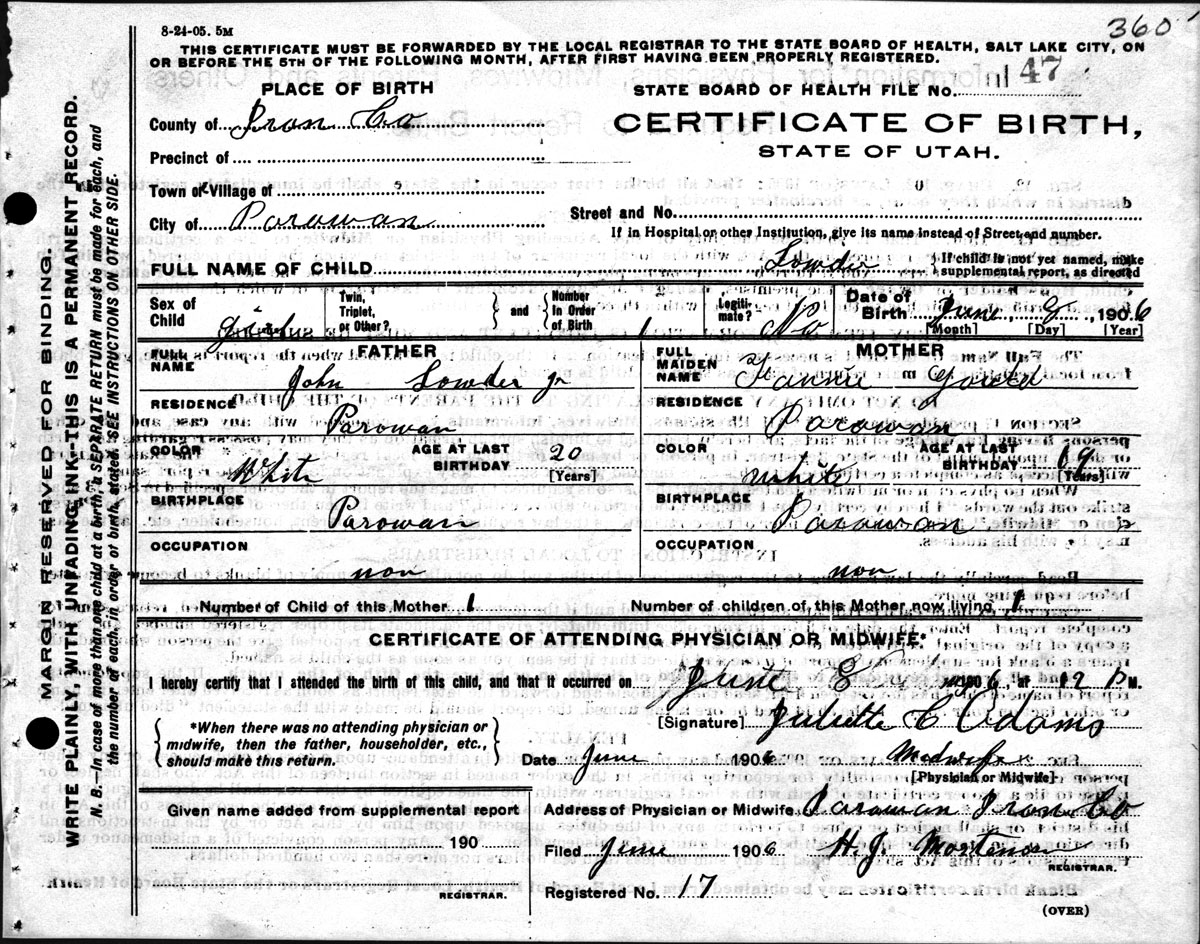 360
8-24-05. 5M
THIS CERTIFICATE MUST BE FORWARDED BY THE LOCAL REGISTRAR TO THE STATE BOARD OF HEALTH, SALT LAKE CITY, ON
OR BEFORE THE 5TH OF THE FOLLOWING MONTH, AFTER FIRST HAVING BEEN PROPERLY REGISTERED.
PLACE OF BIRTH
STATE BOARD OF HEALTH FILE No. 47
County of Iron Co
CERTIFICATE OF BIRTH,
STATE OF UTAH.
Precinct of
Town or Village of
City of Parowan
Street and No.
If in Hospital or other Institution, give its name instead of Street and number.
FULL NAME OF CHILD Lowder
If child is not yet named, make
supplemental report, as directed
Sex of
Child
Twin,
Triplet,
or Other?
and
Number
In Order
of Birth 1
Legiti-
mate? No
Date of
Birth June 8, 1906
[Month] [Day] [Year]
FATHER
FULL
NAME John Lowder Jr
RESIDENCE
Parowan
COLOR White
AGE AT LAST
BIRTHDAY 20
[Years]
BIRTHPLACE
Parowan
OCCUPATION
non
MOTHER
FULL
MAIDEN
NAME Fannie
RESIDENCE
Parowan
COLOR White
AGE AT LAST
BIRTHDAY 19
[Years]
BIRTHPLACE
Parowan
OCCUPATION
non
Number of Child of this Mother 1
Number of children of this Mother now living 1
CERTIFICATE OF ATTENDING PHYSICIAN OR MIDWIFE*
I hereby certify that I attended the birth of this child, and that it occurred on June 8 1906, at 12 P M.
*When there was no attending physician or
midwife, then the father, householder, etc.,
should make this return.
[Signature] Juliette C Adams
Date June 1906
Midwife
[Physician or Midwife]
Given name added from supplemental report
190
REGISTRAR.
Address of Physician or Midwife Parowan Iron Co
Filed June 1906 H. J. Mortenson
REGISTRAR.
Registered No. 17
(OVER)
MARGIN RESERVED FOR BINDING.
WRITE PLAINLY, WITH UNFADING INK—THIS IS A PERMANENT RECORD.
N. B.—In case of more than one child at a birth, a SEPARATE RETURN must be made for each, and
the number of each, in order of birth, stated. SEE INSTRUCTIONS ON OTHER SIDE.